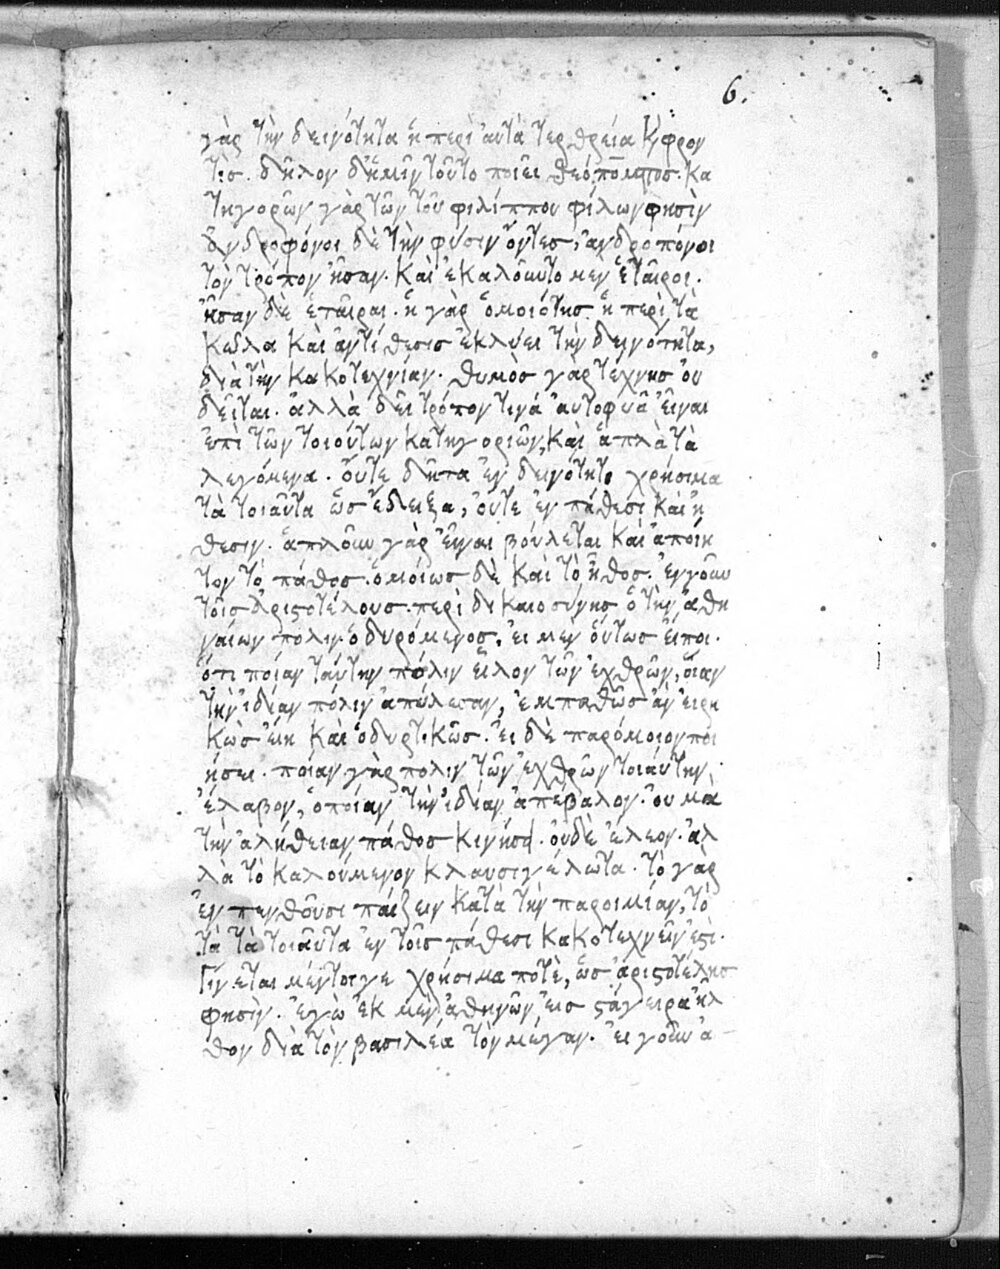 6.
γὰρ τὴν δεινότητα ἡ περὶ αὐτὰ τερθρεία καὶ φρον
τὶσ. δῆλον δἡμῖν τοῦτο ποιεῖ θεόπομπος. κα
τηγορῶν γὰρ τῶν τοῦ φιλίππου φίλων φησὶν
ἀνδροφόνοι δὲ τὴν φύσιν ὄντεσ, ἀνδροπόρνοι
τὸν τρόπον ἦσαν. καὶ ἐκαλοῦντο μεν ἑταῖροι.
ἦσαν δὲ ἑταῖραι. ἡ γὰρ ὁμοιότησ ἡ περὶ τὰ
κῶλα καὶ ἀντίθεσισ ἐκλύει τὴν δεινότητα,
διὰ τὴν κακοτεχνίαν. θυμὸσ γὰρ τέχνησ οὐ
δεῖται. ἀλλὰ δεῖ τρόπον τινά αὐτοφυᾶ εἶναι
ἐπὶ τῶν τοιούτων κατηγοριῶν, καὶ ἁπλὰ τὰ
λεγόμενα. οὔτε δῆτα ἐν δεινότητι χρήσιμα
τὰ τοιαῦτα ὡσ ἔδειξα, οὔτε ἐν πάθεσι καὶ ἤ
θεσιν. ἁπλοῦν γὰρ εἶναι βούλεται καὶ ἀποίη
τον τὸ πάθοσ. ὁμοίωσ δὲ καὶ τὸ ἦθοσ. ἐν γοῦν
τοῖσ ἀριστοτέλουσ. περὶ δικαιοσύνησ ὁ τὴν ἀθη
ναίων πόλιν ὀδυρόμενοσ, εἰ μεν οὕτωσ εἴποι.
ὅτι ποίαν ταύτην πόλιν εἷλον τῶν ἐχθρῶν, οἵαν
τὴν ἰδίαν πόλιν ἀπώλεσαν, ἐμπαθῶσ ἀν εἰρη
κὼσ εἴη καὶ ὀδυρτικῶσ. εἰ δὲ παρόμοιον ποι
ήσει. ποίαν γὰρ πόλιν τῶν ἐχθρῶν τοιαύτην
ἔλαβον, ὁποίαν τὴν ἰδίαν ἀπέβαλον. οὐ μὰ
τὴν ἀλήθειαν πάθοσ κινήσει. οὐδὲ ἔλεον. ἀλ
λὰ τὸ καλούμενον κλαυσιγέλωτα. τὸ γὰρ
ἐν πενθοῦσι παίζειν κατὰ τὴν παροιμίαν, τὸ
τὰ τὰ τοιαῦτα ἐν τοῖσ πάθεσι κακοτεχνεῖν ἐστι.
Γίνεται μέντοιγε χρήσιμα ποτὲ, ὡσ ἀριστοτέλησ
φησὶν. ἐγὼ ἐκ μὲν ἀθηνῶν εἰσ στάγειρα ἦλ
θον διὰ τὸν βασιλέα τὸν μέγαν. εἰ γοῦν ἀ